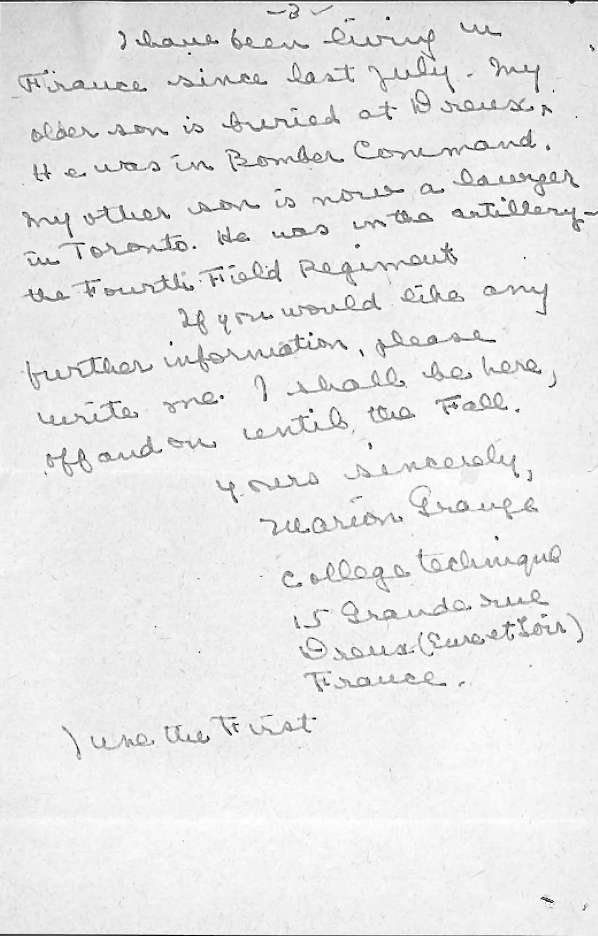 -3-
I have been living in
France since last July. My
older son is buried at Dreux.
He was in Bomber Command.
My other son is now a lawyer
in Toronto. He was in the artillery-
the Fourth Field Regiment
If you would like any
further information, please
write me. I shall be here,
off and on until the Fall.
Yours sincerely,
Marion Grange
College technique
15 Grande rue
Dreux (Eure et Loir)
France.
June the First